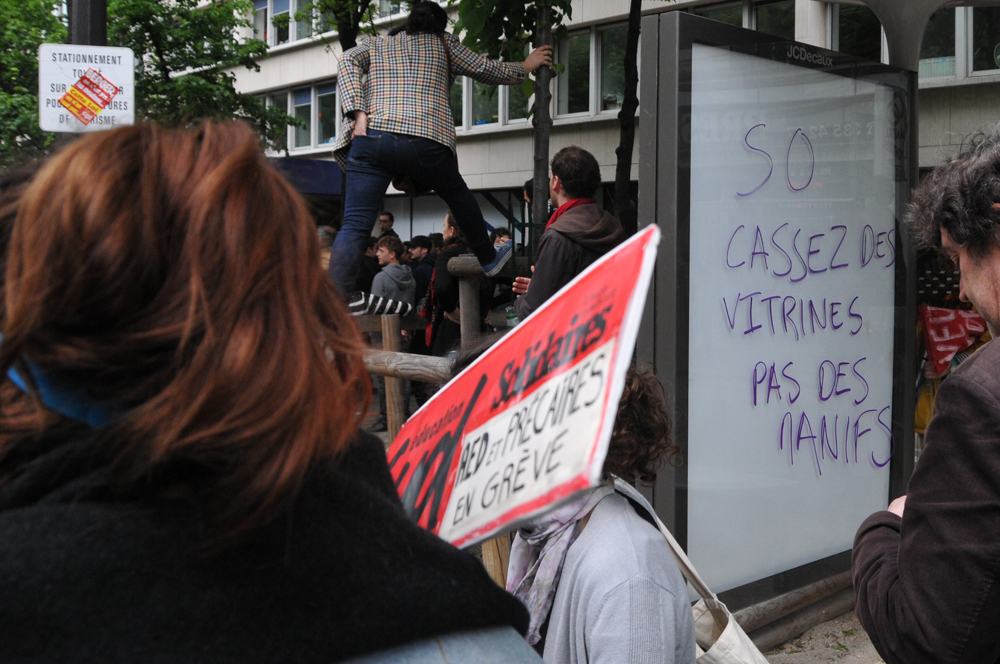 STATIONNEMENT
JCDecaux
SO
CASSEZ DES
VITRINES
PAS DES
MANIFS
éducation
Sud
Solidaires
AED ET PRÉCAIRES
EN GRÈVE